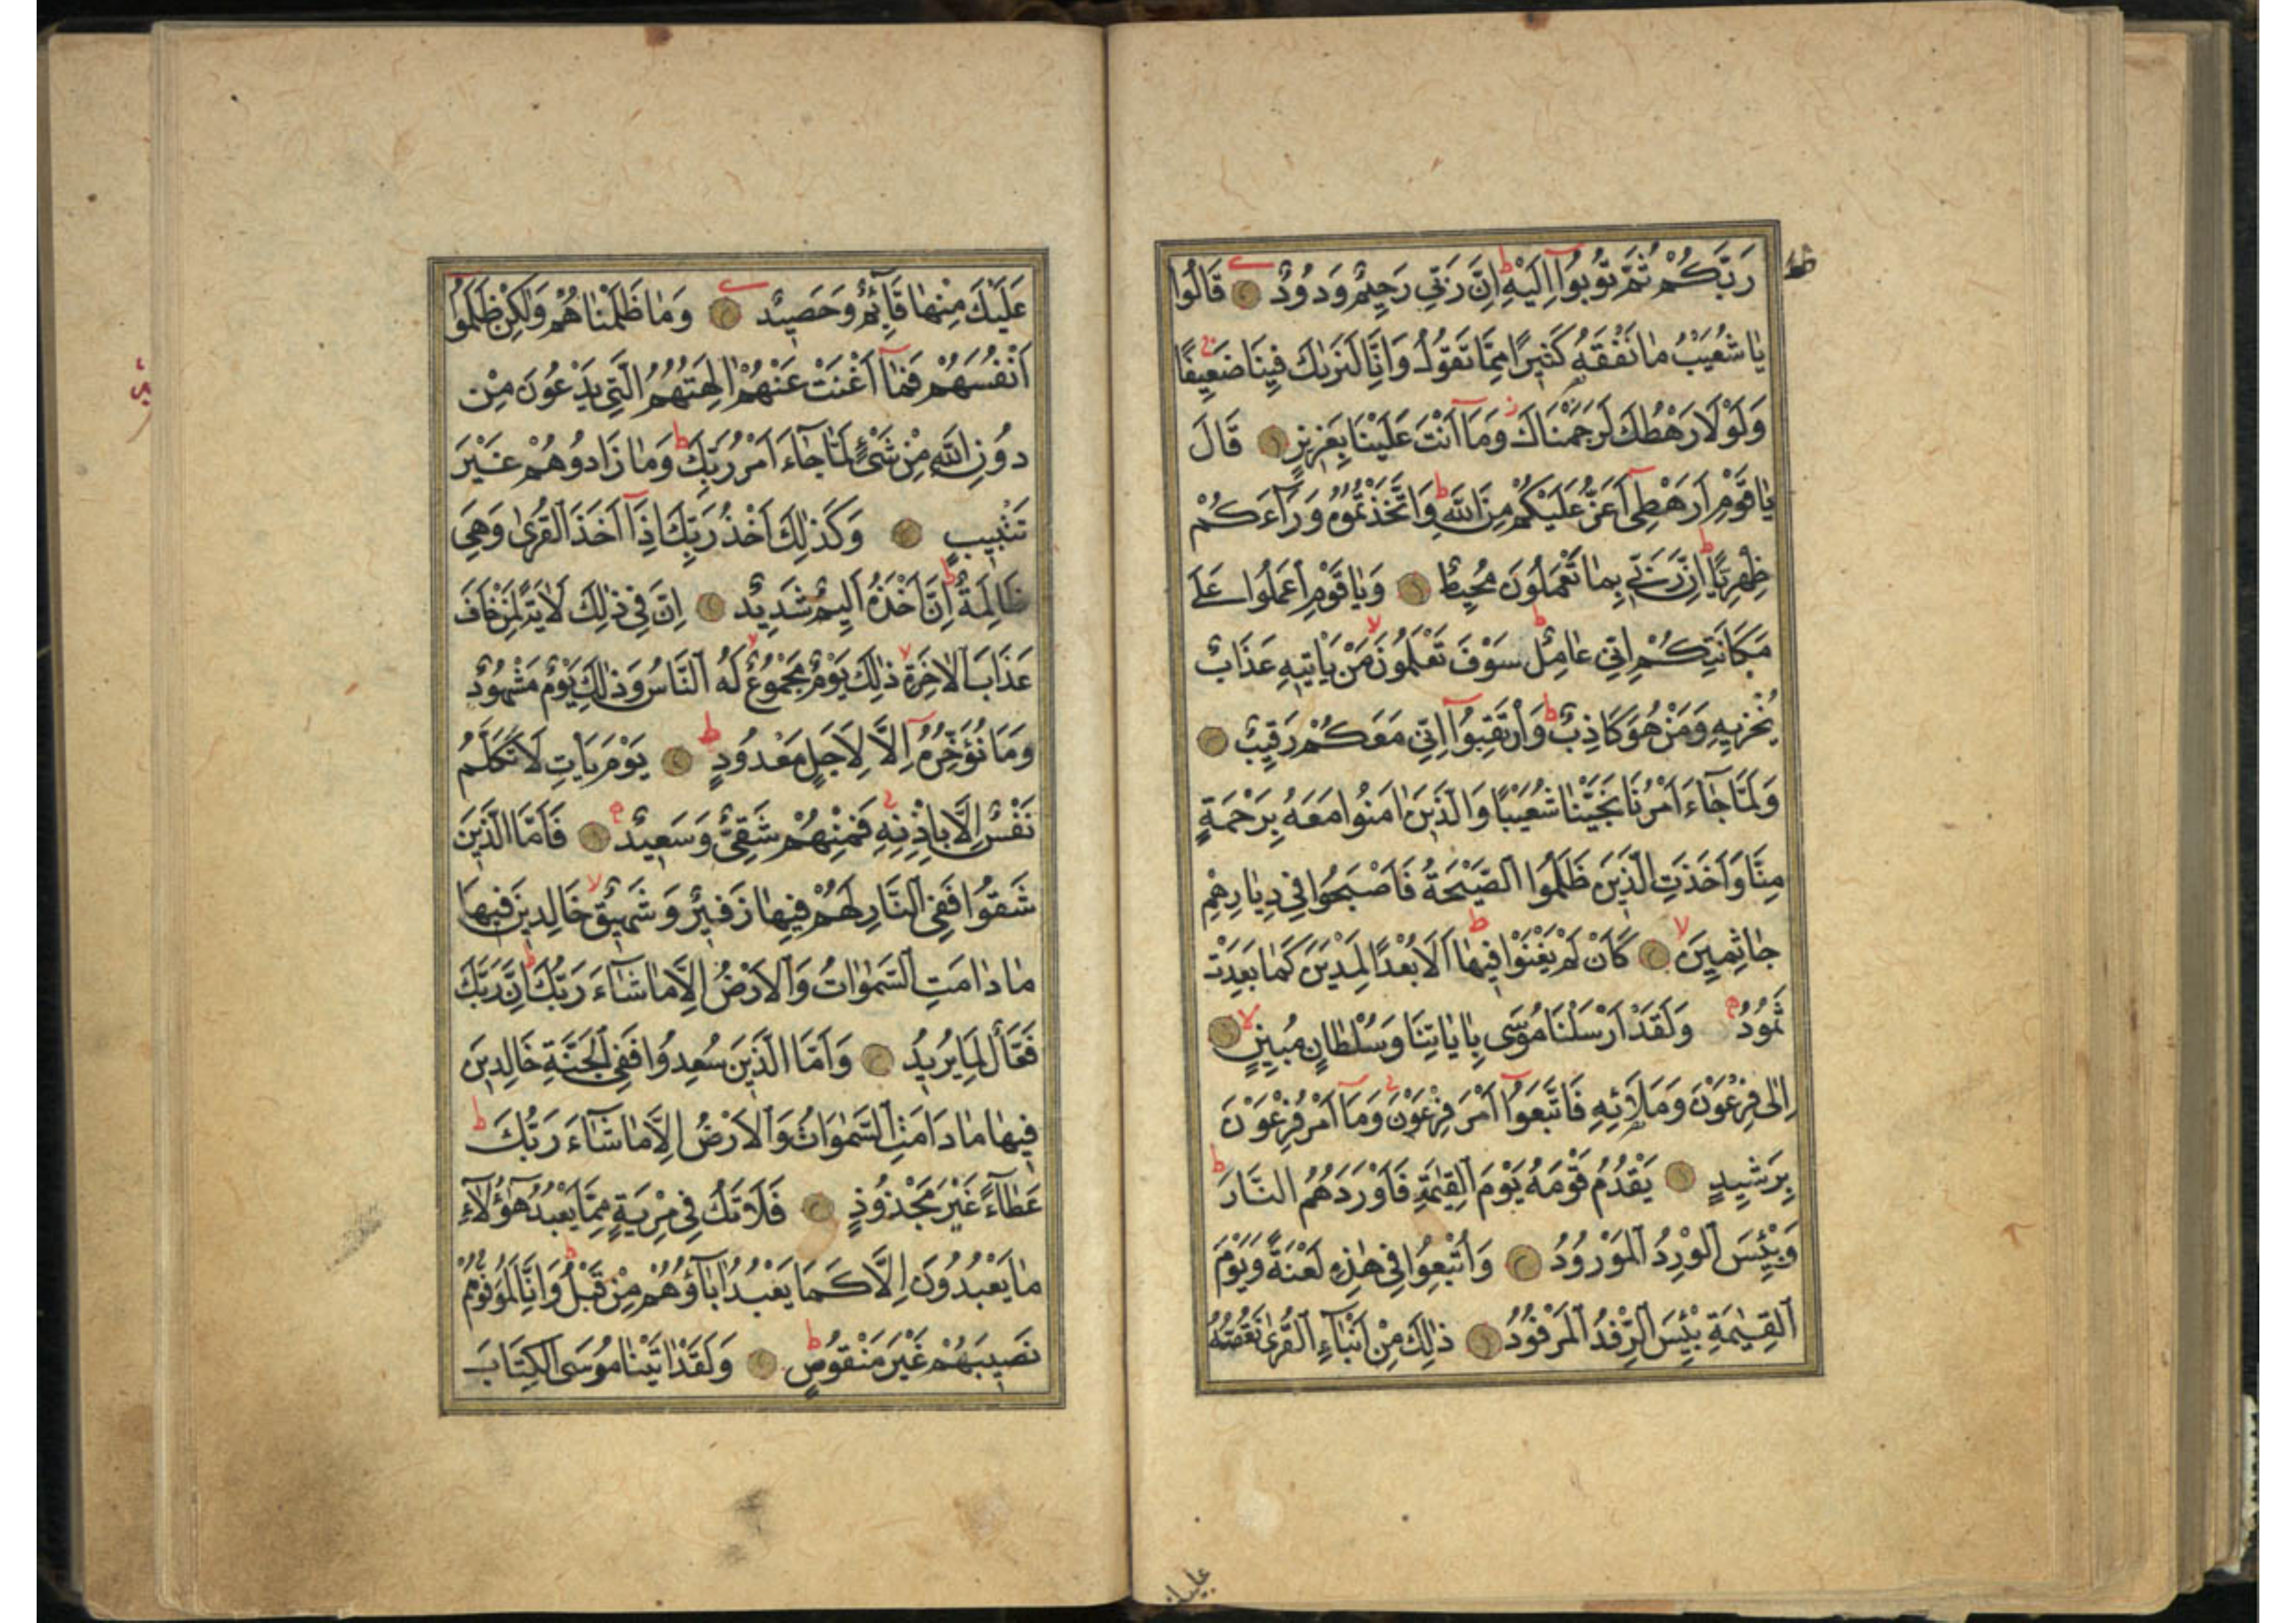 رَبَّكُمْ ثُمَّ تُوبُوٓا اِلَيْهِ اِنَّ رَبّٖى رَحٖيمٌ وَدُودٌ قَالُوا
يٰا شُعَيْبُ مٰا نَفْقَهُ كَثٖيرًا مِمَّا تَقُولُ وَاِنَّا لَنَرٰيكَ فٖينَا ضَعٖيفًا
وَلَوْلَا رَهْطُكَ لَرَجَمْنَاكَ وَمَآ اَنْتَ عَلَيْنَا بِعَزٖيزٍ قَالَ
يٰا قَوْمِ اَرَهْطٖىٓ اَعَزُّ عَلَيْكُمْ مِنَ اللّٰهِ وَاتَّخَذْتُمُوهُ وَرَآءَكُمْ
ظِهْرِيًّا اِنَّ رَبّٖى بِمٰا تَعْمَلُونَ مُحٖيطٌ وَيٰا قَوْمِ اعْمَلُوا عَلٰى
مَكَانَتِكُمْ اِنّٖى عٰامِلٌ سَوْفَ تَعْلَمُونَ مَنْ يَاْتٖيهِ عَذَابٌ
يُخْزٖيهِ وَمَنْ هُوَ كَاذِبٌ وَارْتَقِبُوٓا اِنّٖى مَعَكُمْ رَقٖيبٌ
وَلَمَّا جٰآءَ اَمْرُنَا نَجَّيْنٰا شُعَيْبًا وَالَّذٖينَ اٰمَنُوا مَعَهُ بِرَحْمَةٍ
مِنَّا وَاَخَذَتِ الَّذٖينَ ظَلَمُوا الصَّيْحَةُ فَاَصْبَحُوا فٖى دِيٰارِهِمْ
جٰاثِمٖينَ كَاَنْ لَمْ يَغْنَوْا فٖيهٰا اَلَا بُعْدًا لِمَدْيَنَ كَمٰا بَعِدَتْ
ثَمُودُ وَلَقَدْ اَرْسَلْنَا مُوسٰى بِاٰيٰاتِنَا وَسُلْطٰانٍ مُبٖينٍ
اِلٰى فِرْعَوْنَ وَمَلَائِهٖ فَاتَّبَعُوٓا اَمْرَ فِرْعَوْنَ وَمَآ اَمْرُ فِرْعَوْنَ
بِرَشٖيدٍ يَقْدُمُ قَوْمَهُ يَوْمَ الْقِيٰمَةِ فَاَوْرَدَهُمُ النَّارَ
وَبِئْسَ الْوِرْدُ الْمَوْرُودُ وَاُتْبِعُوا فٖى هٰذِهٖ لَعْنَةً وَيَوْمَ
الْقِيٰمَةِ بِئْسَ الرِّفْدُ الْمَرْفُودُ ذٰلِكَ مِنْ اَنْبَآءِ الْقُرٰى نَقُصُّهُ
عَلَيْكَ مِنْهٰا قَآئِمٌ وَحَصٖيدٌ وَمَا ظَلَمْنٰاهُمْ وَلٰكِنْ ظَلَمُوٓا
اَنْفُسَهُمْ فَمٰآ اَغْنَتْ عَنْهُمْ اٰلِهَتُهُمُ الَّتٖى يَدْعُونَ مِنْ
دُونِ اللّٰهِ مِنْ شَىْءٍ لَمَّا جٰآءَ اَمْرُ رَبِّكَ وَمٰا زَادُوهُمْ غَيْرَ
تَتْبٖيبٍ وَكَذٰلِكَ اَخْذُ رَبِّكَ اِذَآ اَخَذَ الْقُرٰى وَهِىَ
ظَالِمَةٌ اِنَّ اَخْذَهُ اَلٖيمٌ شَدٖيدٌ اِنَّ فٖى ذٰلِكَ لَاٰيَةً لِمَنْ خٰافَ
عَذَابَ الْاٰخِرَةِ ذٰلِكَ يَوْمٌ مَجْمُوعٌ لَهُ النَّاسُ وَذٰلِكَ يَوْمٌ مَشْهُودٌ
وَمَا نُؤَخِّرُهُ اِلَّا لِاَجَلٍ مَعْدُودٍ يَوْمَ يَاْتِ لَا تَكَلَّمُ
نَفْسٌ اِلَّا بِاِذْنِهٖ فَمِنْهُمْ شَقِىٌّ وَسَعٖيدٌ فَاَمَّا الَّذٖينَ
شَقُوا فَفِى النَّارِ لَهُمْ فٖيهٰا زَفٖيرٌ وَشَهٖيقٌ خَالِدٖينَ فٖيهَا
مٰا دٰامَتِ السَّمٰوٰاتُ وَالْاَرْضُ اِلَّا مٰا شَآءَ رَبُّكَ اِنَّ رَبَّكَ
فَعَّالٌ لِمَا يُرٖيدُ وَاَمَّا الَّذٖينَ سُعِدُوا فَفِى الْجَنَّةِ خَالِدٖينَ
فٖيهٰا مٰا دَامَتِ السَّمٰوَاتُ وَالْاَرْضُ اِلَّا مٰا شَآءَ رَبُّكَ
عَطٰآءً غَيْرَ مَجْذُوذٍ فَلَا تَكُ فٖى مِرْيَةٍ مِمَّا يَعْبُدُ هٰؤُلَآءِ
مٰا يَعْبُدُونَ اِلَّا كَمٰا يَعْبُدُ اٰبَآؤُهُمْ مِنْ قَبْلُ وَاِنَّا لَمُوَفُّوهُمْ
نَصٖيبَهُمْ غَيْرَ مَنْقُوصٍ وَلَقَدْ اٰتَيْنٰا مُوسَى الْكِتَابَ